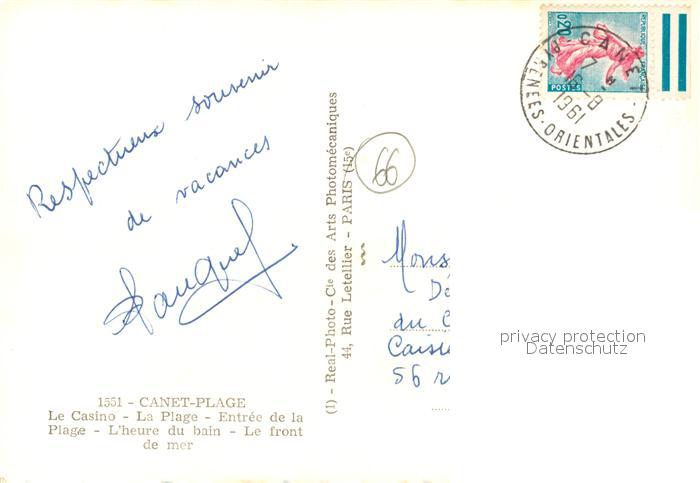 Respectueux souvenir
de vacances
1551 - CANET-PLAGE
Le Casino - La Plage - Entrée de la
Plage - L'heure du bain - Le front
de mer
(1) - Real-Photo - Cie des Arts Photomécaniques
44, Rue Letellier - PARIS (15e)
66
REPUBLIQUE FRANÇAISE
0,20
POSTES
CANET
PYRENEES-ORIENTALES
1961
Mons
Dé
du C
Caisse
56 r
privacy protection
Datenschutz